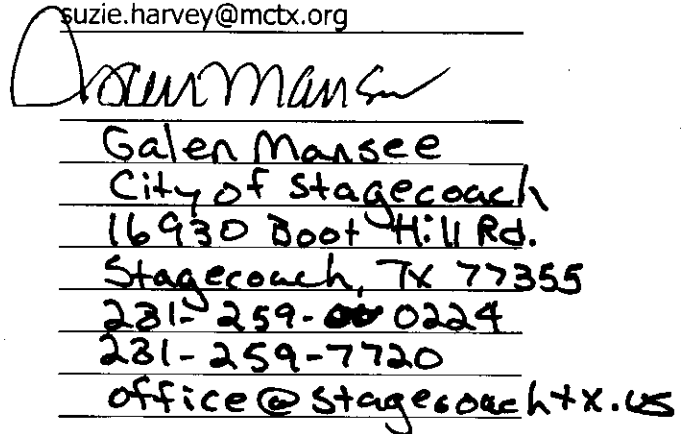 suzie.harvey@mctx.org
Galen Mansee
City of Stagecoach
16930 Boot Hill Rd.
Stagecoach, TX 77355
281-259-0224
281-259-7720
office@stagecoachtx.us